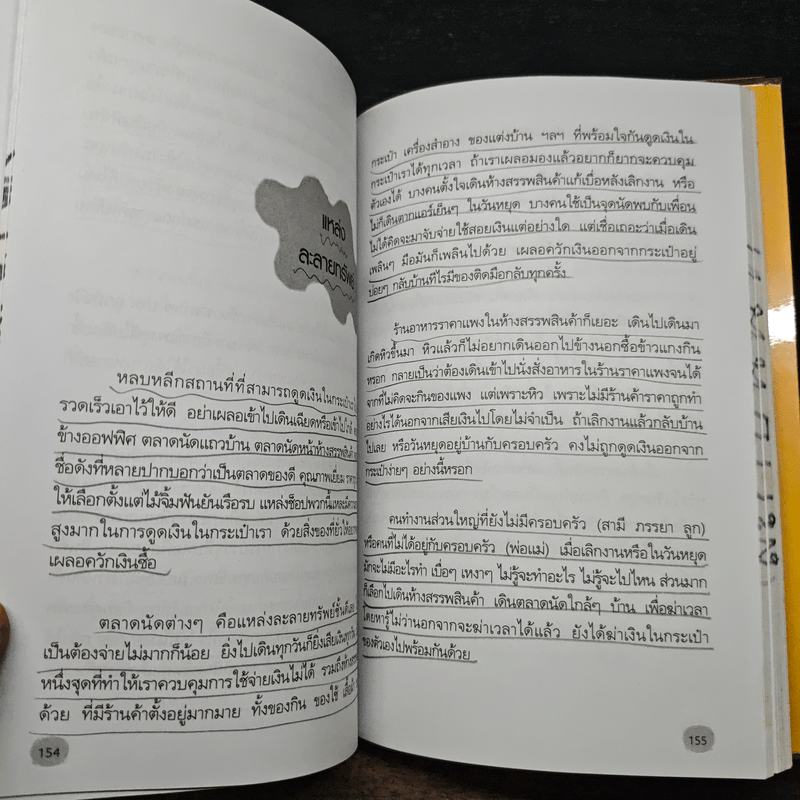 แหล่ง
ละลายทรัพย์
หลบหลีกสถานที่ที่สามารถดูดเงินในกระเป๋า
รวดเร็วเอาไว้ให้ดี อย่าเผลอเข้าไปเดินเฉียดหรือเข้าไป
ข้างออฟฟิศ ตลาดนัดแถวบ้าน ตลาดนัดหน้าห้างสรรพสินค้า
ชื่อดังที่หลายปากบอกว่าเป็นตลาดของดี คุณภาพเยี่ยม
ให้เลือกตั้งแต่ไม้จิ้มฟันยันเรือรบ แหล่งช็อปพวกนี้แหละ
สูงมากในการดูดเงินในกระเป๋าเรา ด้วยสิ่งของที่ยั่วให้
เผลอควักเงินซื้อ
ตลาดนัดต่างๆ คือแหล่งละลายทรัพย์ชั้นดีเลย
เป็นต้องจ่ายไม่มากก็น้อย ยิ่งไปเดินทุกวันก็ยิ่งเสียเงินทุกวัน
หนึ่งจุดที่ทำให้เราควบคุมการใช้จ่ายเงินไม่ได้ รวมถึง
ด้วย ที่มีร้านค้าตั้งอยู่มากมาย ทั้งของกิน ของใช้
154
กระเป๋า เครื่องสำอาง ของแต่งบ้าน ฯลฯ ที่พร้อมใจกันดูดเงินใน
กระเป๋าเราได้ทุกเวลา ถ้าเราเผลอมองแล้วอยากก็ยากจะควบคุม
ตัวเองได้ บางคนตั้งใจเดินห้างสรรพสินค้าแก้เบื่อหลังเลิกงาน หรือ
ไม่ก็เดินตากแอร์เย็นๆ ในวันหยุด บางคนใช้เป็นจุดนัดพบกับเพื่อน
ไม่ได้คิดจะมาจับจ่ายใช้สอยเงินแต่อย่างใด แต่เชื่อเถอะว่าเมื่อเดิน
เพลินๆ มือมันก็เพลินไปด้วย เผลอควักเงินออกจากกระเป๋าอยู่
บ่อยๆ กลับบ้านทีไรมีของติดมือกลับทุกครั้ง
ร้านอาหารราคาแพงในห้างสรรพสินค้าก็เยอะ เดินไปเดินมา
เกิดหิวขึ้นมา หิวแล้วก็ไม่อยากเดินออกไปข้างนอกซื้อข้าวแกงกิน
หรอก กลายเป็นว่าต้องเดินเข้าไปนั่งสั่งอาหารในร้านราคาแพงจนได้
จากที่ไม่คิดจะกินของแพง แต่เพราะหิว เพราะไม่มีร้านค้าราคาถูกทำ
อย่างไรได้นอกจากเสียเงินไปโดยไม่จำเป็น ถ้าเลิกงานแล้วกลับบ้าน
ไปเลย หรือวันหยุดอยู่บ้านกับครอบครัว คงไม่ถูกดูดเงินออกจาก
กระเป๋าง่ายๆ อย่างนี้หรอก
คนทำงานส่วนใหญ่ที่ยังไม่มีครอบครัว (สามี ภรรยา ลูก)
หรือคนที่ไม่ได้อยู่กับครอบครัว (พ่อแม่) เมื่อเลิกงานหรือในวันหยุด
มักจะไม่มีอะไรทำ เบื่อๆ เหงาๆ ไม่รู้จะทำอะไร ไม่รู้จะไปไหน ส่วนมาก
ก็เลือกไปเดินห้างสรรพสินค้า เดินตลาดนัดใกล้ๆ บ้าน เพื่อฆ่าเวลา
โดยหารู้ไม่ว่านอกจากจะฆ่าเวลาได้แล้ว ยังได้ฆ่าเงินในกระเป๋า
ของตัวเองไปพร้อมกันด้วย
155